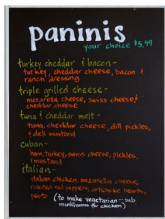 paninis
your choice $5.99
turkey cheddar & bacon-
turkey, cheddar cheese, bacon &
ranch dressing
triple grilled cheese-
mozarella cheese, swiss cheese &
cheddar cheese
tuna & cheddar melt-
tuna, cheddar cheese, dill pickles,
& deli mustard
cuban-
ham, turkey, swiss cheese, pickles,
& mustard
italian-
italian chicken, mozarella cheese,
roasted red peppers, artichoke hearts,
pesto (to make vegetarian - sub
mushrooms for chicken)